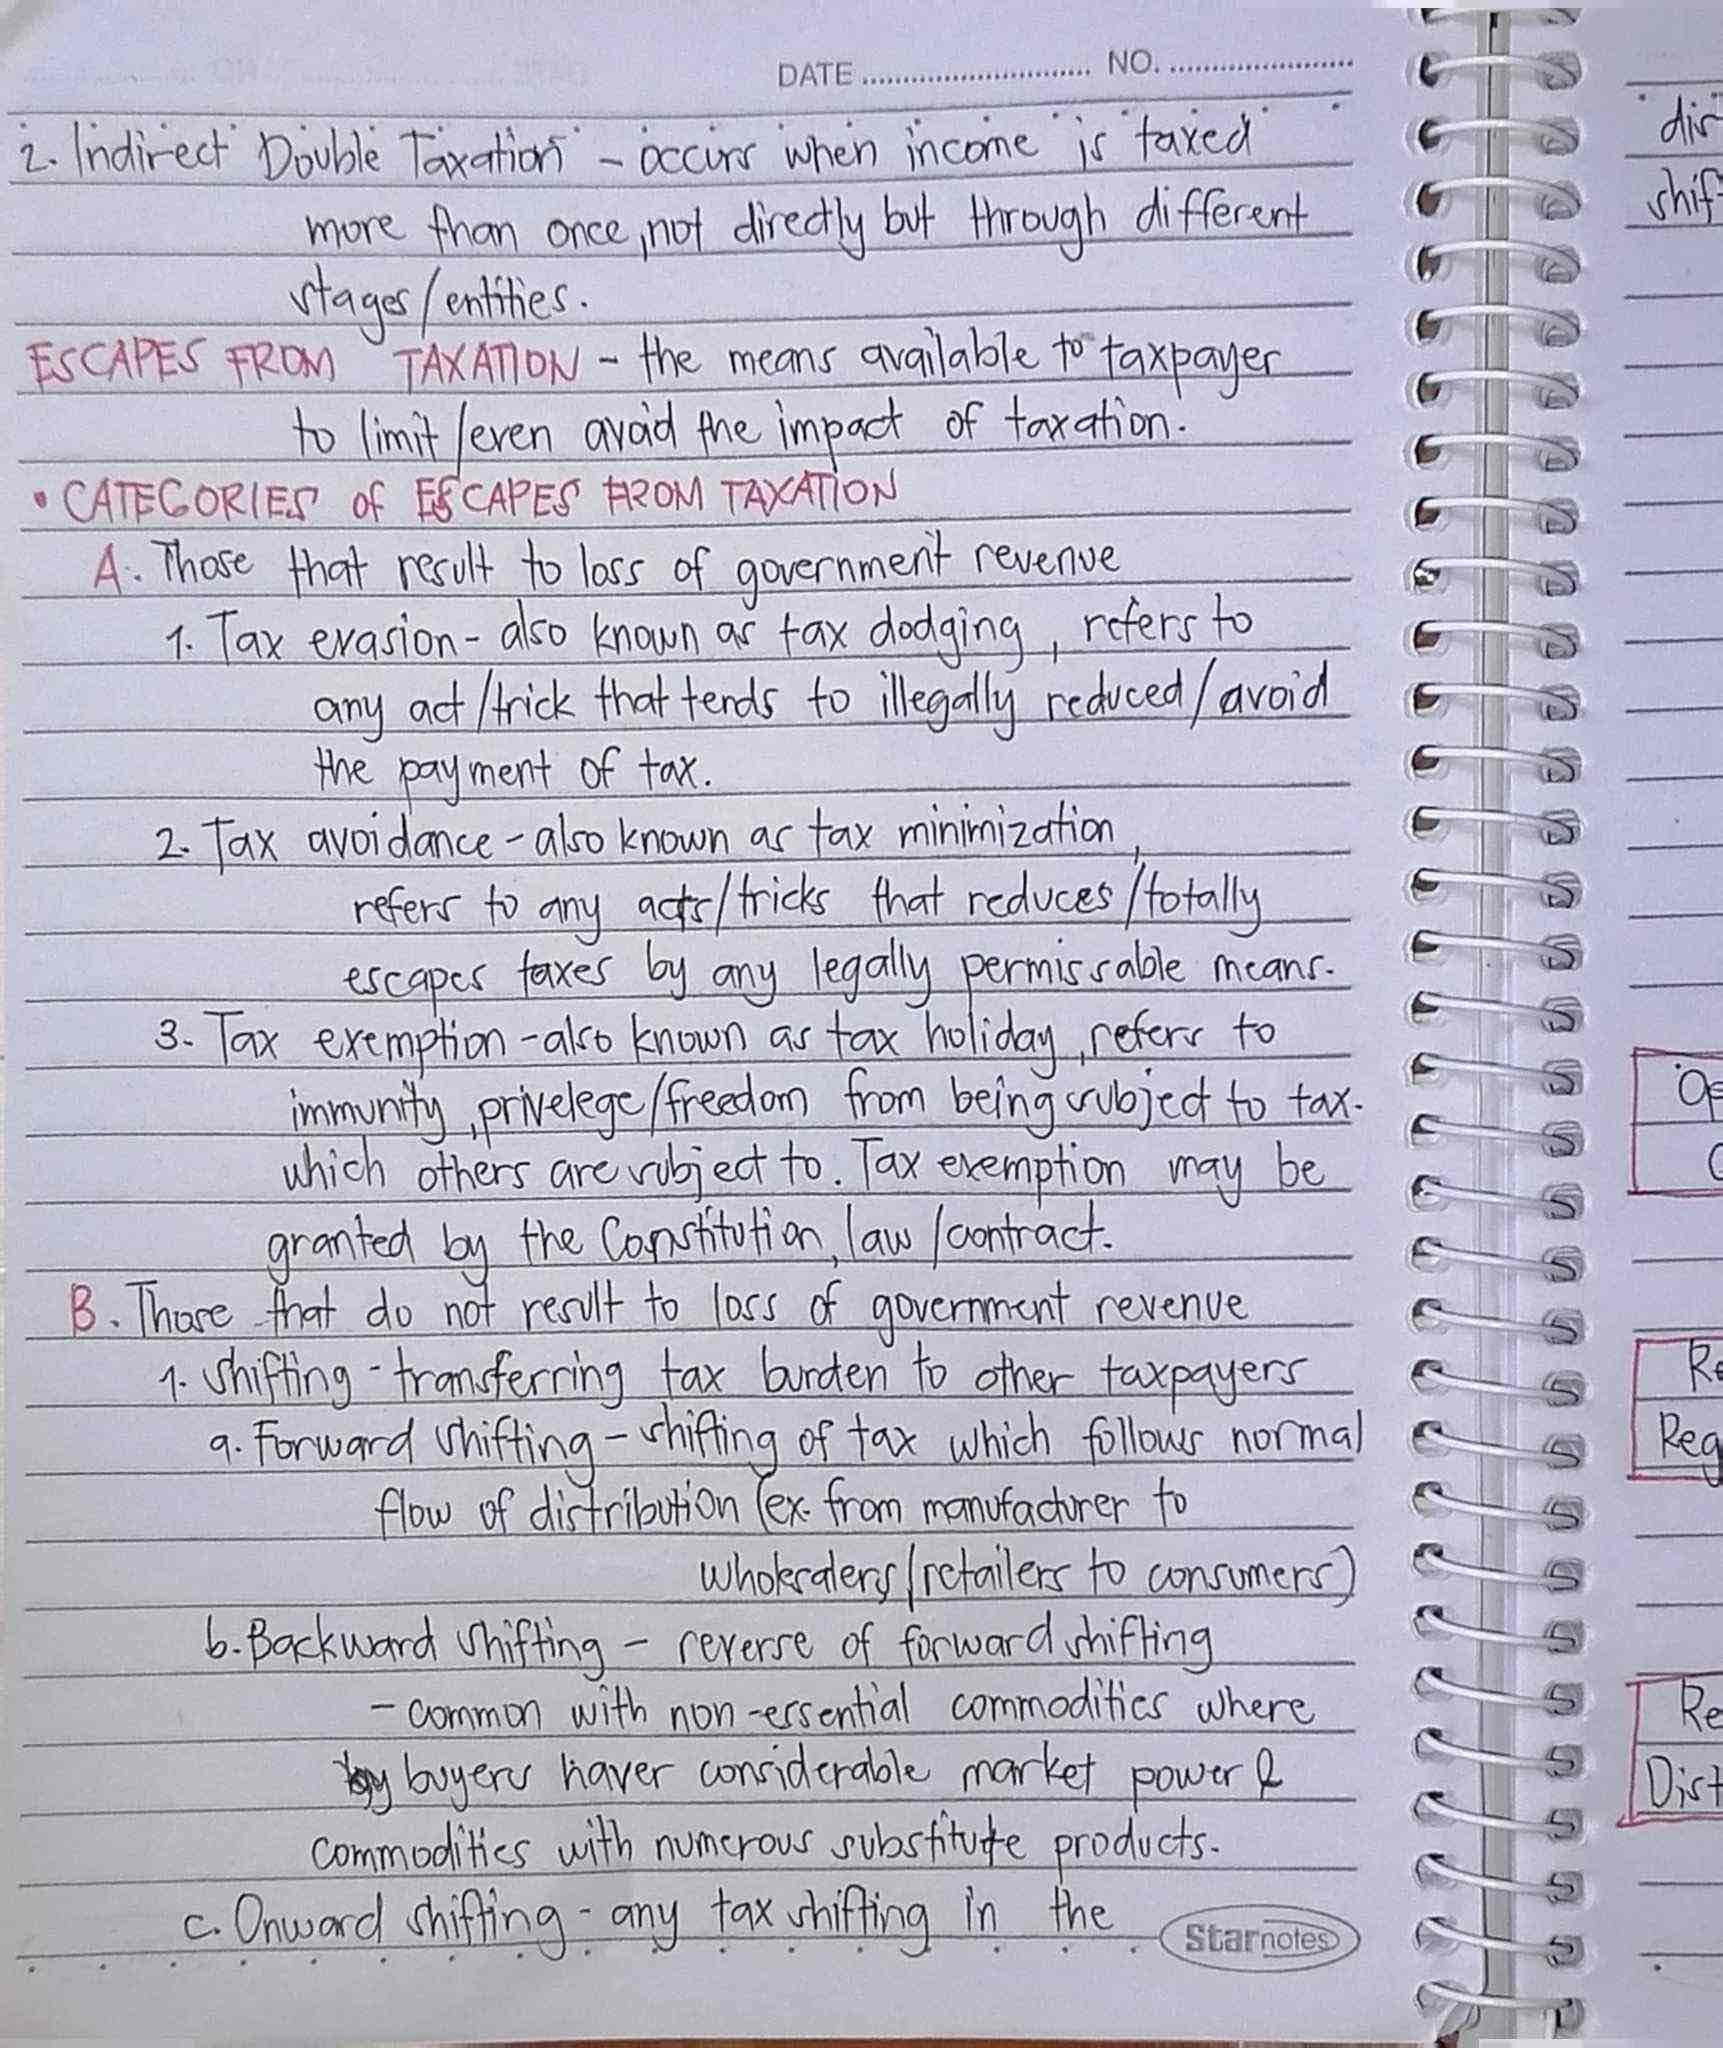 DATE ........................... NO. ......................
2. Indirect Double Taxation - occurs when income is taxed
more than once, not directly but through different
stages/entities.
ESCAPES FROM TAXATION - the means available to taxpayer
to limit/even avoid the impact of taxation.
• CATEGORIES of ESCAPES FROM TAXATION
A. Those that result to loss of government revenue
1. Tax evasion - also known as tax dodging, refers to
any act/trick that tends to illegally reduced/avoid
the payment of tax.
2. Tax avoidance - also known as tax minimization,
refers to any acts/tricks that reduces/totally
escapes taxes by any legally permissable means.
3. Tax exemption - also known as tax holiday, refers to
immunity, privelege/freedom from being subject to tax.
which others are subject to. Tax exemption may be
granted by the Constitution, law/contract.
B. Those that do not result to loss of government revenue
1. Shifting - transferring tax burden to other taxpayers
a. Forward Shifting - shifting of tax which follows normal
flow of distribution (ex. from manufacturer to
wholesalers/retailers to consumers)
b. Backward Shifting - reverse of forward shifting
- common with non-essential commodities where
by buyers haver considerable market power &
commodities with numerous substitute products.
c. Onward shifting - any tax shifting in the
Starnotes
dir
shif
Op
C
Re
Reg
Re
Dist